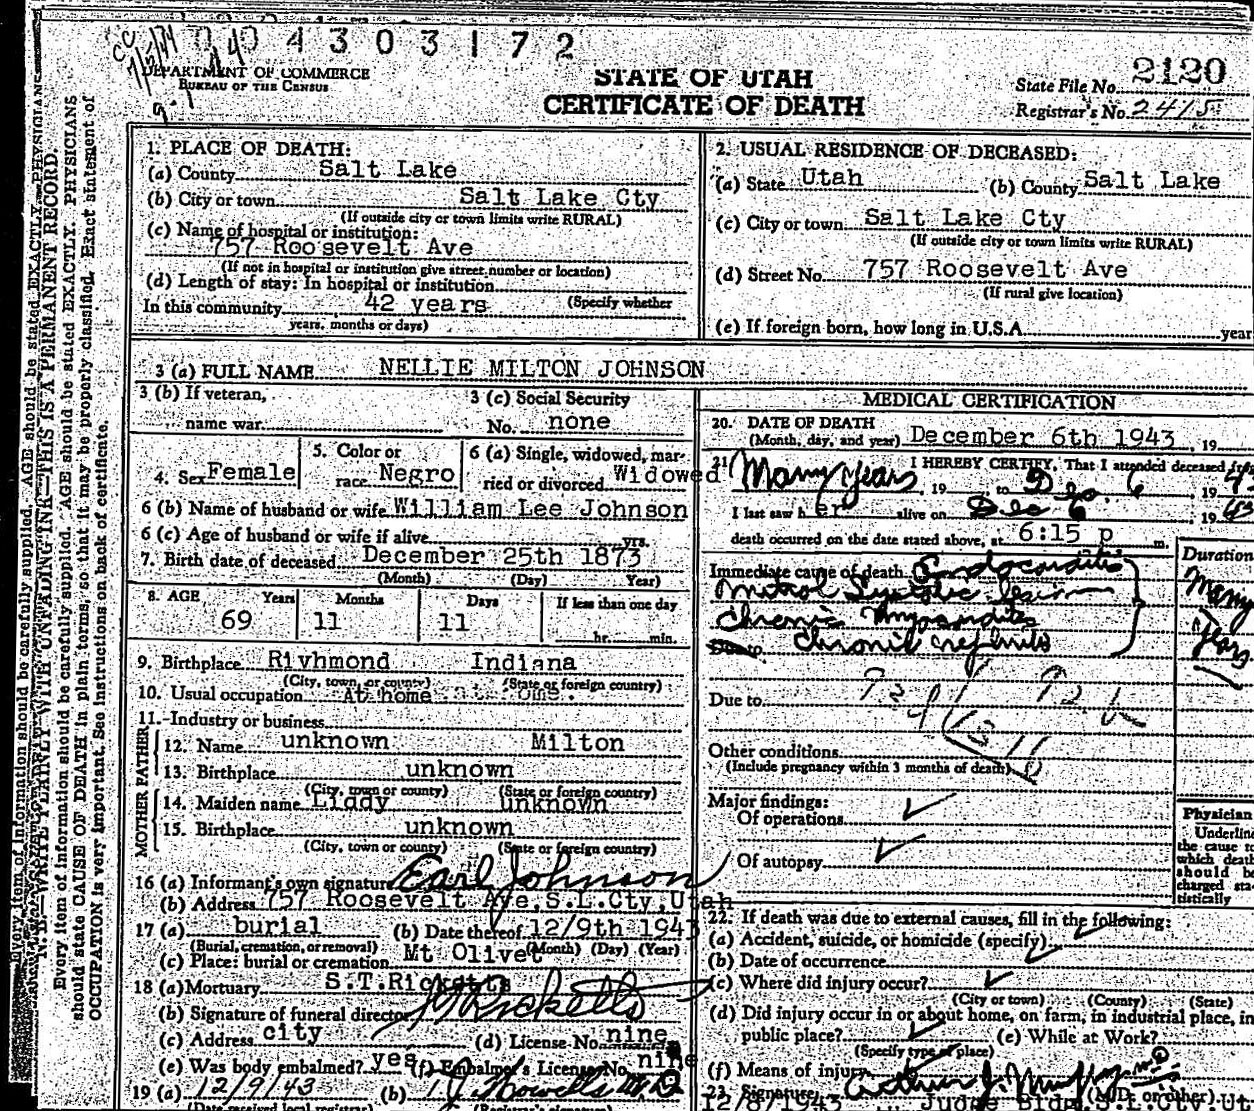 04303172
DEPARTMENT OF COMMERCE
BUREAU OF THE CENSUS
STATE OF UTAH
CERTIFICATE OF DEATH
State File No. 2120
Registrar's No. 2415
N. B.—WRITE PLAINLY WITH UNFADING INK—THIS IS A PERMANENT RECORD.
Every item of information should be carefully supplied. AGE should be stated EXACTLY. PHYSICIANS
should state CAUSE OF DEATH in plain terms, so that it may be properly classified. Exact statement of
OCCUPATION is very important. See instructions on back of certificate.
1. PLACE OF DEATH:
(a) County Salt Lake
(b) City or town Salt Lake Cty
(If outside city or town limits write RURAL)
(c) Name of hospital or institution:
757 Roosevelt Ave
(If not in hospital or institution give street number or location)
(d) Length of stay: In hospital or institution
(Specify whether
In this community 42 years
years, months or days)
2. USUAL RESIDENCE OF DECEASED:
(a) State Utah (b) County Salt Lake
(c) City or town Salt Lake Cty
(If outside city or town limits write RURAL)
(d) Street No. 757 Roosevelt Ave
(If rural give location)
(e) If foreign born, how long in U.S.A. year
3 (a) FULL NAME NELLIE MILTON JOHNSON
3 (b) If veteran,
name war
3 (c) Social Security
No. none
4. Sex Female
5. Color or
race Negro
6 (a) Single, widowed, mar-
ried or divorced Widowed
6 (b) Name of husband or wife William Lee Johnson
6 (c) Age of husband or wife if alive yrs.
7. Birth date of deceased December 25th 1873
(Month) (Day) Year)
8. AGE Years Months Days If less than one day
69 11 11 hr. min.
9. Birthplace Rivhmond Indiana
(City, town, or county) (State or foreign country)
10. Usual occupation At home
11. Industry or business
FATHER
12. Name unknown Milton
13. Birthplace unknown
(City, town or county) (State or foreign country)
MOTHER
14. Maiden name Liddy unknown
15. Birthplace unknown
(City, town or county) (State or foreign country)
16 (a) Informant's own signature Earl Johnson
(b) Address 757 Roosevelt Ave, S.L.Cty, Utah
17 (a) burial (b) Date thereof 12/9th 1943
(Burial, cremation, or removal) (Month) (Day) (Year)
(c) Place: burial or cremation Mt Olivet
18 (a) Mortuary S.T.Ricketts
(b) Signature of funeral director Ricketts
(c) Address city (d) License No. nine
(e) Was body embalmed? yes (f) Embalmer's License No. nine
19 (a) 12/9/43 (b)
(Date received local registrar) (Registrar's signature)
MEDICAL CERTIFICATION
20. DATE OF DEATH
(Month, day, and year) December 6th 1943, 19
21 I HEREBY CERTIFY, That I attended deceased from
Many Years, 19 to Dec. 6, 19 43
I last saw her alive on Dec 6, 19 43
death occurred on the date stated above, at 6:15 p m.
Duration
Immediate cause of death Endocarditis
Mitral Systolic lesion
Chronic Myocarditis
Chronic nefritis
Many
Years
Due to
Other conditions
(Include pregnancy within 3 months of death)
Major findings:
Of operations
Of autopsy
Physician
Underline
the cause to
which death
should be
charged sta-
tistically
22. If death was due to external causes, fill in the following:
(a) Accident, suicide, or homicide (specify)
(b) Date of occurrence
(c) Where did injury occur?
(City or town) (County) (State)
(d) Did injury occur in or about home, on farm, in industrial place, in
public place? (e) While at Work?
(Specify type of place)
(f) Means of injury
23. Signature Arthur J. Murphy (M.D. or other)
12/8/1943 Judge Bldg. S.L.Cty. Ut